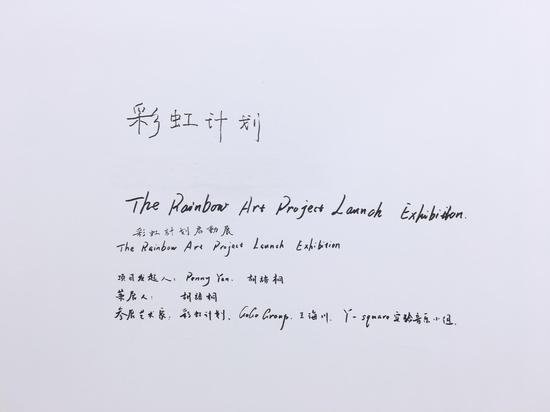 彩虹计划
The Rainbow Art Project Launch Exhibition.
彩虹計划启動展
The Rainbow Art Project Launch Exhibition
项目发起人: Penny Yan. 胡绪桐
策展人: 胡绪桐
参展艺术家: 彩虹计划、GoGo Group. 王海川. 丫-square实验音乐小组.